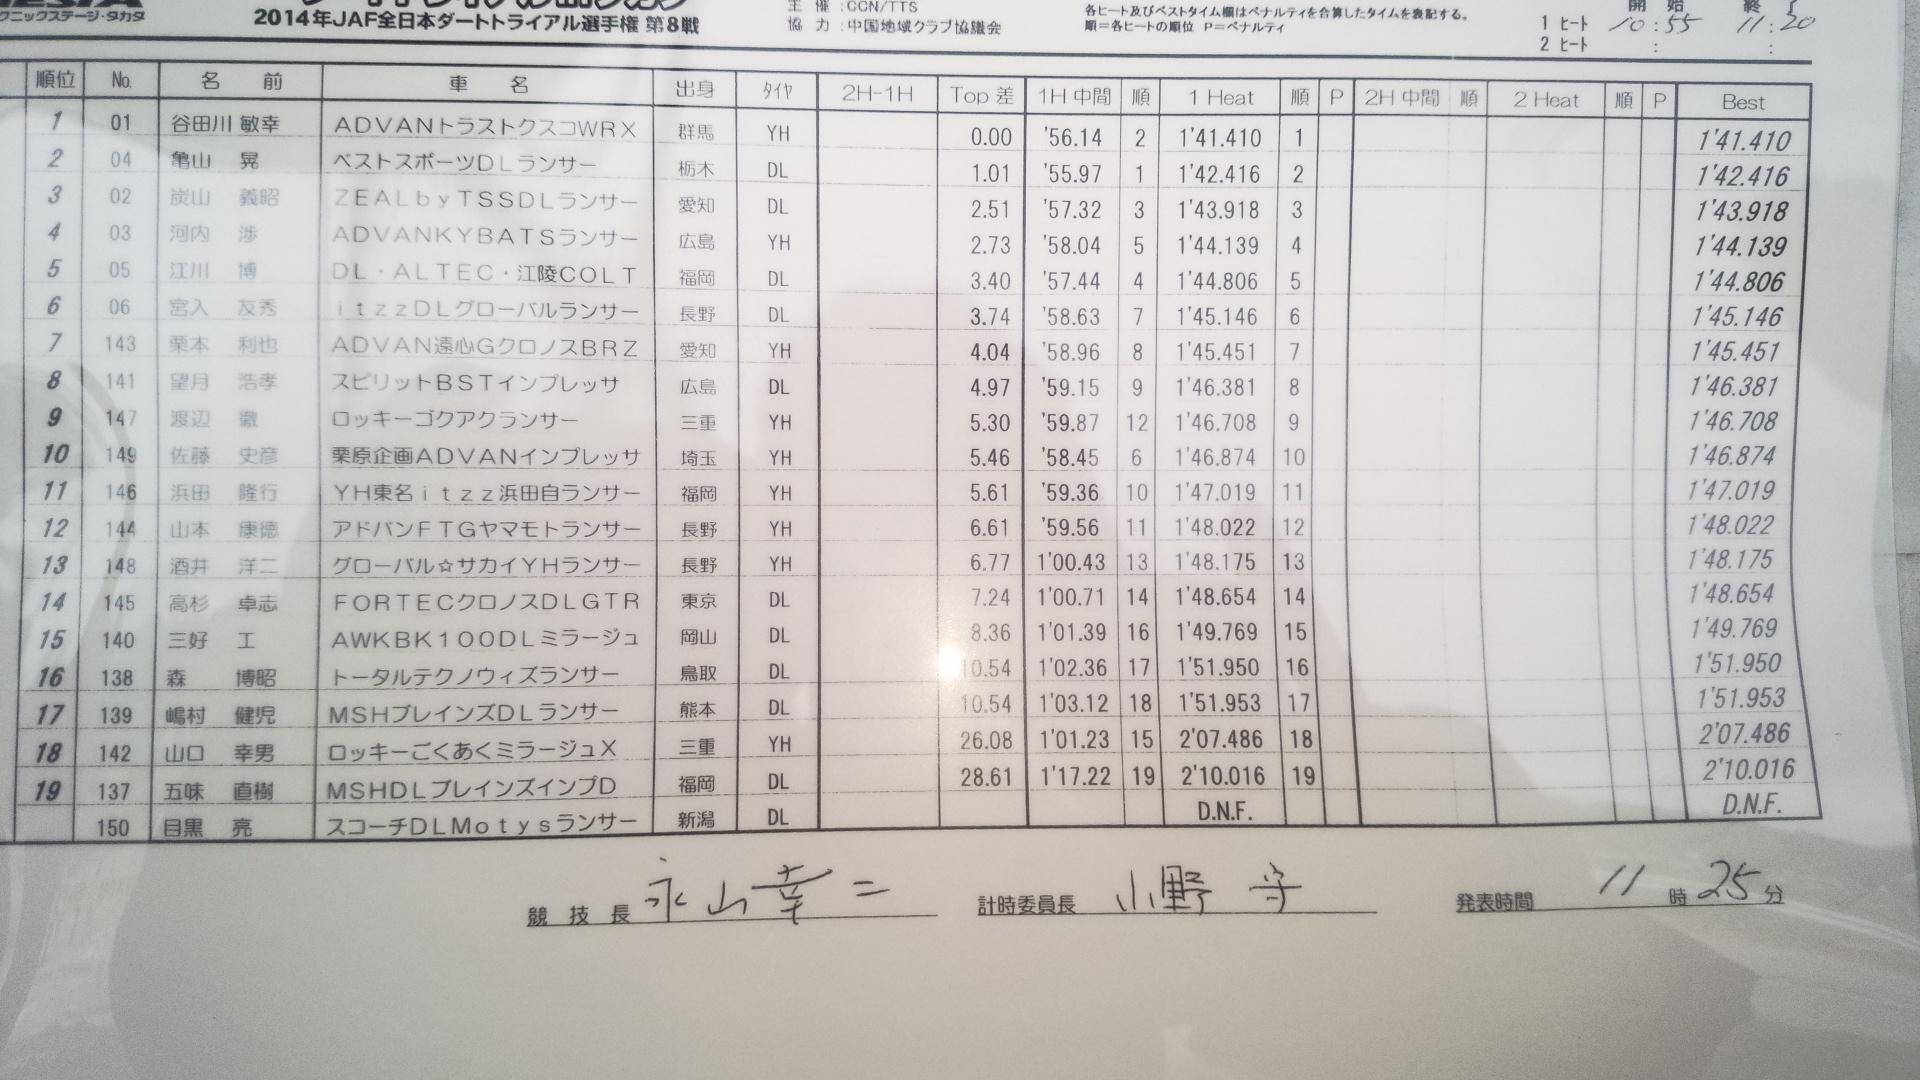 クニックステージ・タカタ
2014年JAF全日本ダートトライアル選手権 第8戦
主 催 :CCN/TTS
協 力 :中国地域クラブ協議会
各ヒート及びベストタイム欄はペナルティを合算したタイムを表記する。
順=各ヒートの順位 P=ペナルティ
開 始 終
1 ヒート 10:55 11:20
2 ヒート : :
順位 No. 名 前 車 名 出身 タイヤ 2H-1H Top 差 1H 中間 順 1 Heat 順 P 2H 中間 順 2 Heat 順 P Best
1 01 谷田川 敏幸 ADVANトラストクスコWRX 群馬 YH 0.00 '56.14 2 1'41.410 1 1'41.410
2 04 亀山 晃 ベストスポーツDLランサー 栃木 DL 1.01 '55.97 1 1'42.416 2 1'42.416
3 02 炭山 義昭 ZEALbyTSSDLランサー 愛知 DL 2.51 '57.32 3 1'43.918 3 1'43.918
4 03 河内 渉 ADVANKYBATSランサー 広島 YH 2.73 '58.04 5 1'44.139 4 1'44.139
5 05 江川 博 DL・ALTEC・江陵COLT 福岡 DL 3.40 '57.44 4 1'44.806 5 1'44.806
6 06 宮入 友秀 itzzDLグローバルランサー 長野 DL 3.74 '58.63 7 1'45.146 6 1'45.146
7 143 栗本 利也 ADVAN遠心GクロノスBRZ 愛知 YH 4.04 '58.96 8 1'45.451 7 1'45.451
8 141 望月 浩孝 スピリットBSTインプレッサ 広島 DL 4.97 '59.15 9 1'46.381 8 1'46.381
9 147 渡辺 徹 ロッキーゴクアクランサー 三重 YH 5.30 '59.87 12 1'46.708 9 1'46.708
10 149 佐藤 史彦 栗原企画ADVANインプレッサ 埼玉 YH 5.46 '58.45 6 1'46.874 10 1'46.874
11 146 浜田 隆行 YH東名itzz浜田自ランサー 福岡 YH 5.61 '59.36 10 1'47.019 11 1'47.019
12 144 山本 康徳 アドバンFTGヤマモトランサー 長野 YH 6.61 '59.56 11 1'48.022 12 1'48.022
13 148 酒井 洋二 グローバル☆サカイYHランサー 長野 YH 6.77 1'00.43 13 1'48.175 13 1'48.175
14 145 高杉 卓志 FORTECクロノスDLGTR 東京 DL 7.24 1'00.71 14 1'48.654 14 1'48.654
15 140 三好 工 AWKBK100DLミラージュ 岡山 DL 8.36 1'01.39 16 1'49.769 15 1'49.769
16 138 森 博昭 トータルテクノウィズランサー 鳥取 DL 10.54 1'02.36 17 1'51.950 16 1'51.950
17 139 嶋村 健児 MSHブレインズDLランサー 熊本 DL 10.54 1'03.12 18 1'51.953 17 1'51.953
18 142 山口 幸男 ロッキーごくあくミラージュX 三重 YH 26.08 1'01.23 15 2'07.486 18 2'07.486
19 137 五味 直樹 MSHDLブレインズインプD 福岡 DL 28.61 1'17.22 19 2'10.016 19 2'10.016
150 目黒 亮 スコーチDLMotysランサー 新潟 DL D.N.F. D.N.F.
競 技 長 永山幸二 計時委員長 小野 守 発表時間 11 時 25 分